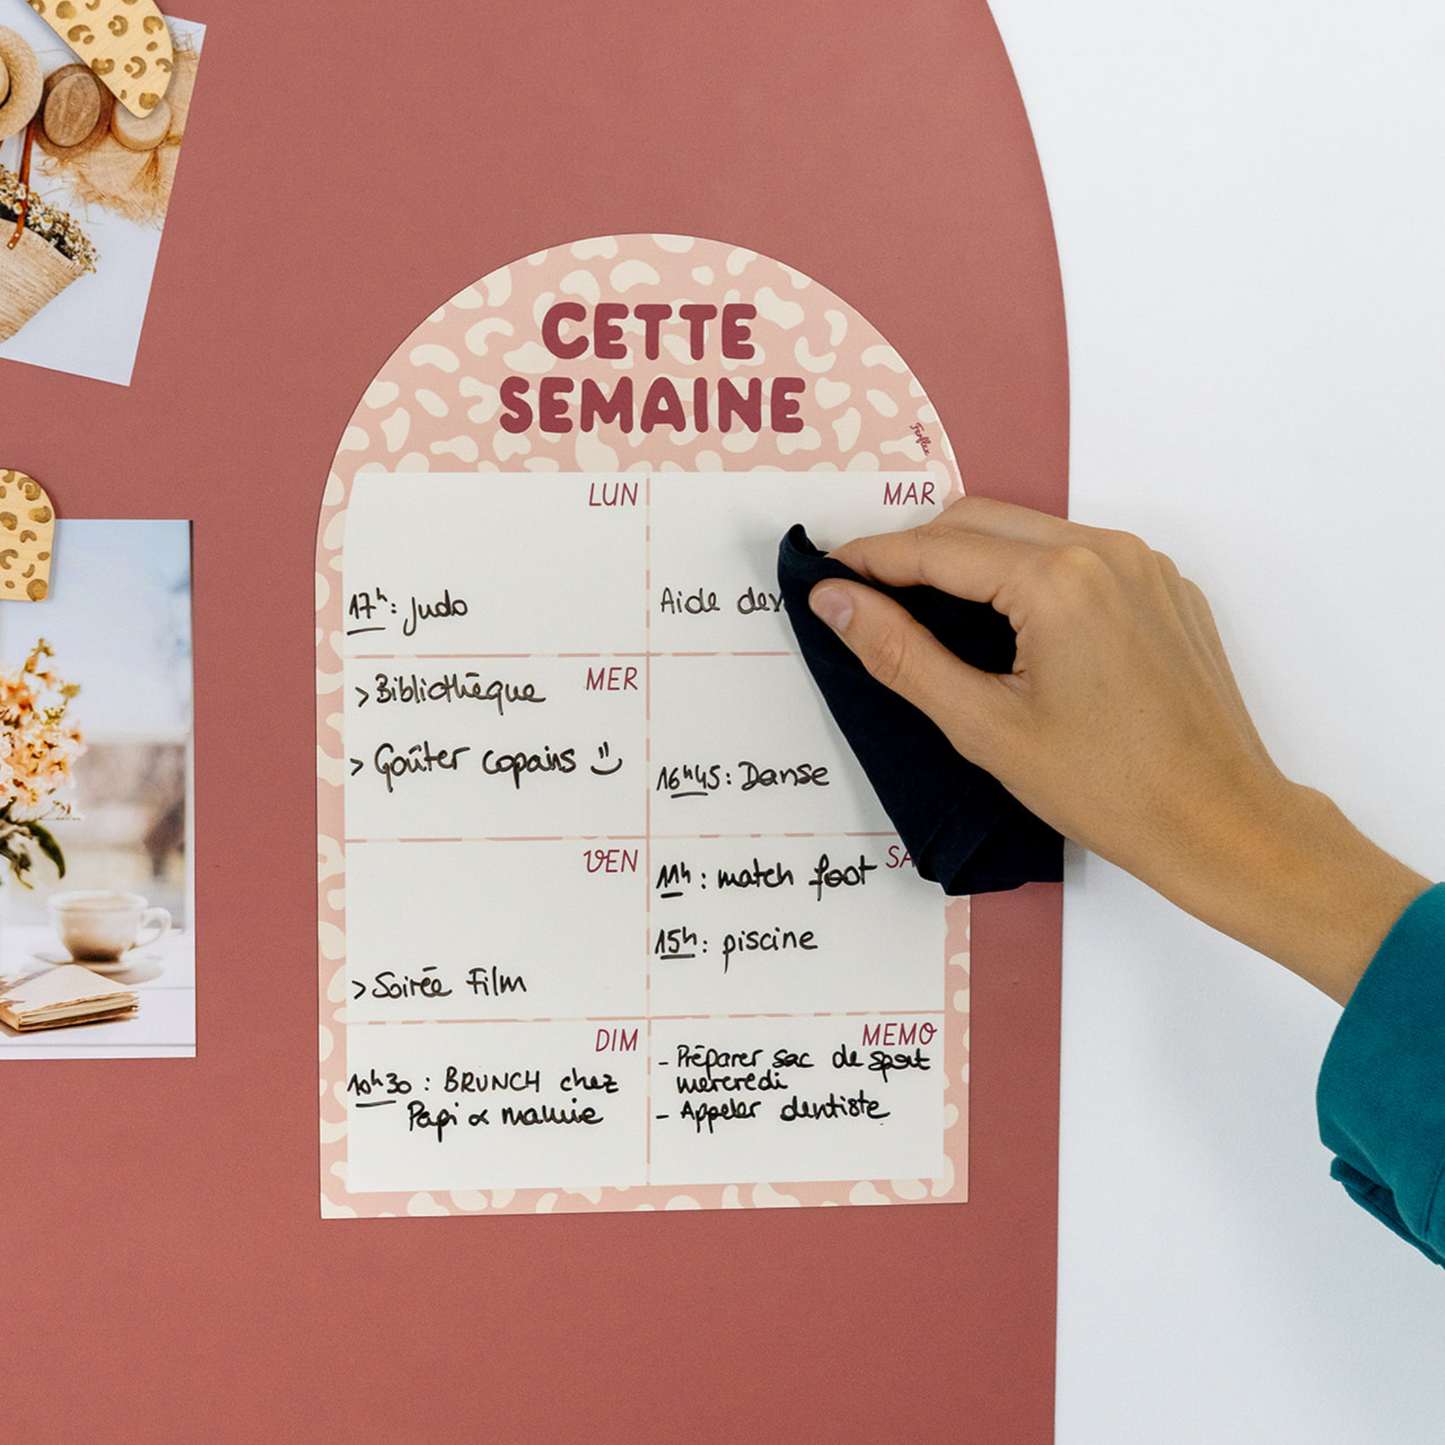 CETTE
SEMAINE
Ferflex
LUN
17h : Judo
MAR
Aide
MER
> Bibliothèque
> Goûter copains
16h45 : Danse
VEN
> Soirée Film
11h : match foot
15h : piscine
DIM
10h30 : BRUNCH chez
Papi & mamie
MEMO
- Préparer sac de sport
mercredi
- Appeler dentiste